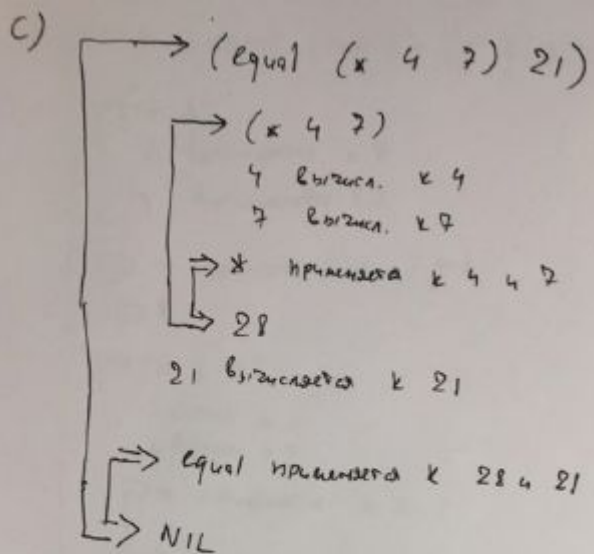 C)
(equal (* 4 7) 21)
(* 4 7)
4 вычисл. к 4
7 вычисл. к 7
* применяется к 4 и 7
28
21 вычисляется к 21
equal применяется к 28 и 21
NIL